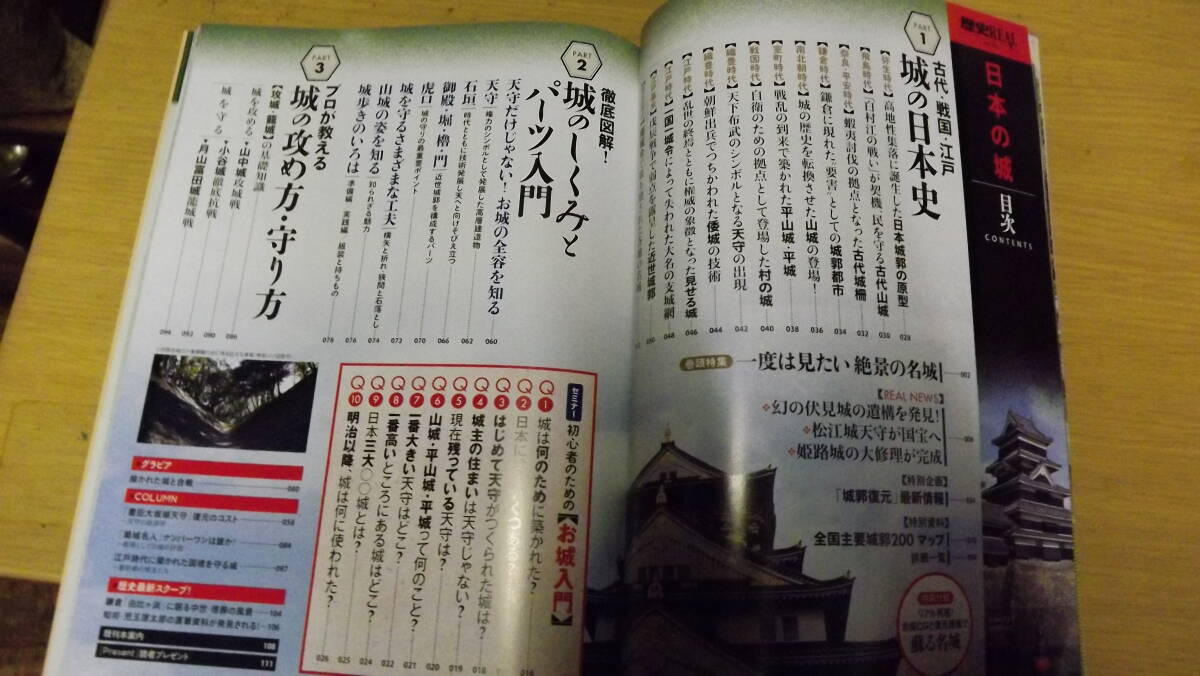 歴史REAL
日本の城
目次
CONTENTS
PART 1
古代・戦国・江戸
城の日本史
【弥生時代】高地性集落に誕生した日本城郭の原型 028
【飛鳥時代】「白村江の戦い」が契機 民を守る古代山城 030
【奈良・平安時代】蝦夷討伐の拠点となった古代城柵 032
【鎌倉時代】鎌倉に現れた“要害”としての城郭都市 034
【南北朝時代】城の歴史を転換させた山城の登場! 036
【室町時代】戦乱の到来で築かれた平山城・平城 038
【戦国時代】自衛のための拠点として登場した村の城 040
【織豊時代】天下布武のシンボルとなる天守の出現 042
【織豊時代】朝鮮出兵でつちかわれた倭城の技術 044
【江戸時代】乱世の終焉とともに権威の象徴となった見せる城 046
【江戸時代】一国一城令によって失われた大名の支城網 048
戊辰戦争で弱点を露呈した近世城郭 050
巻頭特集 一度は見たい 絶景の名城 002
【REAL NEWS】
幻の伏見城の遺構を発見!
松江城天守が国宝へ
姫路城の大修理が完成
008
【特別企画】
「城郭復元」最新情報
【特別資料】
全国主要城郭200マップ
蘇る名城
PART 2
徹底図解!
城のしくみとパーツ入門
天守だけじゃない!お城の全容を知る 060
天守 権力のシンボルとして発展した高層建造物 062
石垣 時代とともに技術発展し天へと向けそびえ立つ 066
御殿・堀・櫓・門 近世城郭を構成するパーツ 070
虎口 城の守りの最重要ポイント 072
城を守るさまざまな工夫 横矢と折れ・狭間と石落とし 074
山城の姿を知る 知られざる魅力 076
城歩きのいろは 準備編 実践編 服装と持ちもの 078
PART 3
プロが教える
城の攻め方・守り方
【攻城・籠城】の基礎知識 086
城を攻める・山中城攻城戦 090
城を守る・小谷城徹底抗戦 092
・月山富田城籠城戦 096
セミナー 初心者のための【お城入門】
Q1 城は何のために築かれた?
Q2 日本に
Q3 はじめて天守がつくられた城は?
Q4 城主の住まいは天守じゃない? 018
Q5 現在残っている天守は? 019
Q6 山城・平山城・平城って何のこと? 020
Q7 一番大きい天守はどこ? 021
Q8 一番高いところにある城はどこ? 022
Q9 日本三大○○城とは?
Q10 明治以降、城は何に使われた?
024
025
026
グラビア
描かれた城と合戦 080
COLUMN
「豊臣大坂城天守」復元のコスト 058
「築城名人」ナンバーワンは誰か! 084
江戸時代に築かれた国境を守る城 097
歴史最新スクープ!
鎌倉「由比ヶ浜」に眠る中世・埋葬の風景 104
知将・児玉源太郎の直筆資料が発見される! 106
既刊本案内 108
[Present]読者プレゼント 111